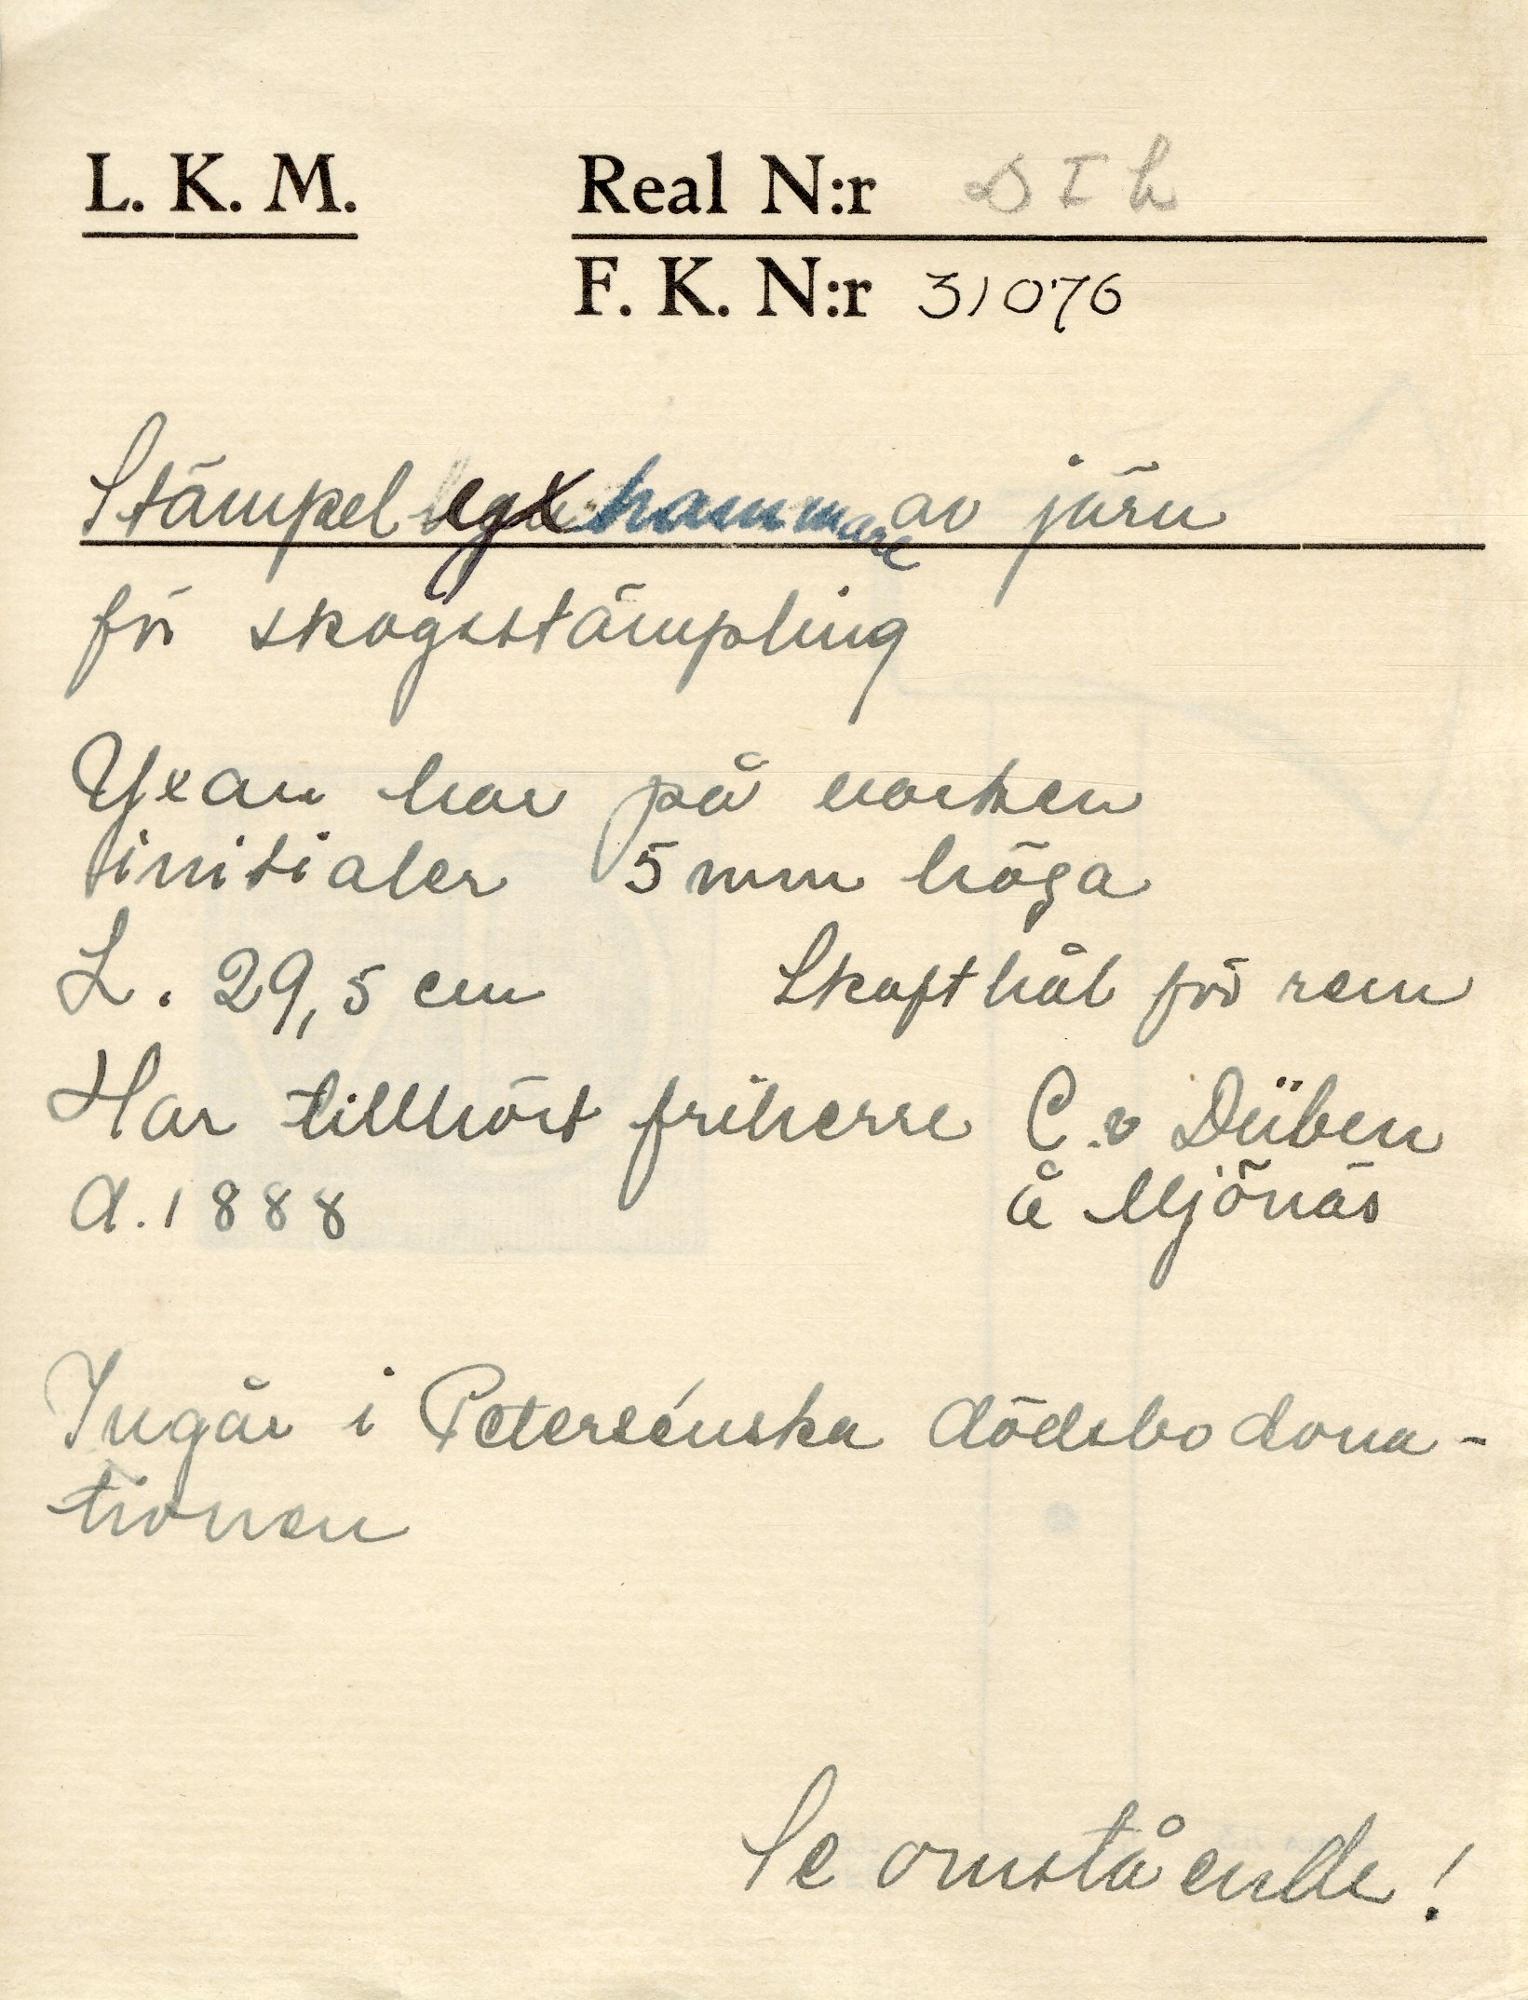 L. K. M.
Real N:r D I h
F. K. N:r 31076
Stämpel hammare av järn
för skogsstämpling
Yxan har på nacken
initialer 5 mm höga
L. 29,5 cm Skafthål för rem
Har tillhört friherre C. v Düben
d. 1888 å Mjönäs
Ingår i Petersénska dödsbodona-
tionen
Se omstående!